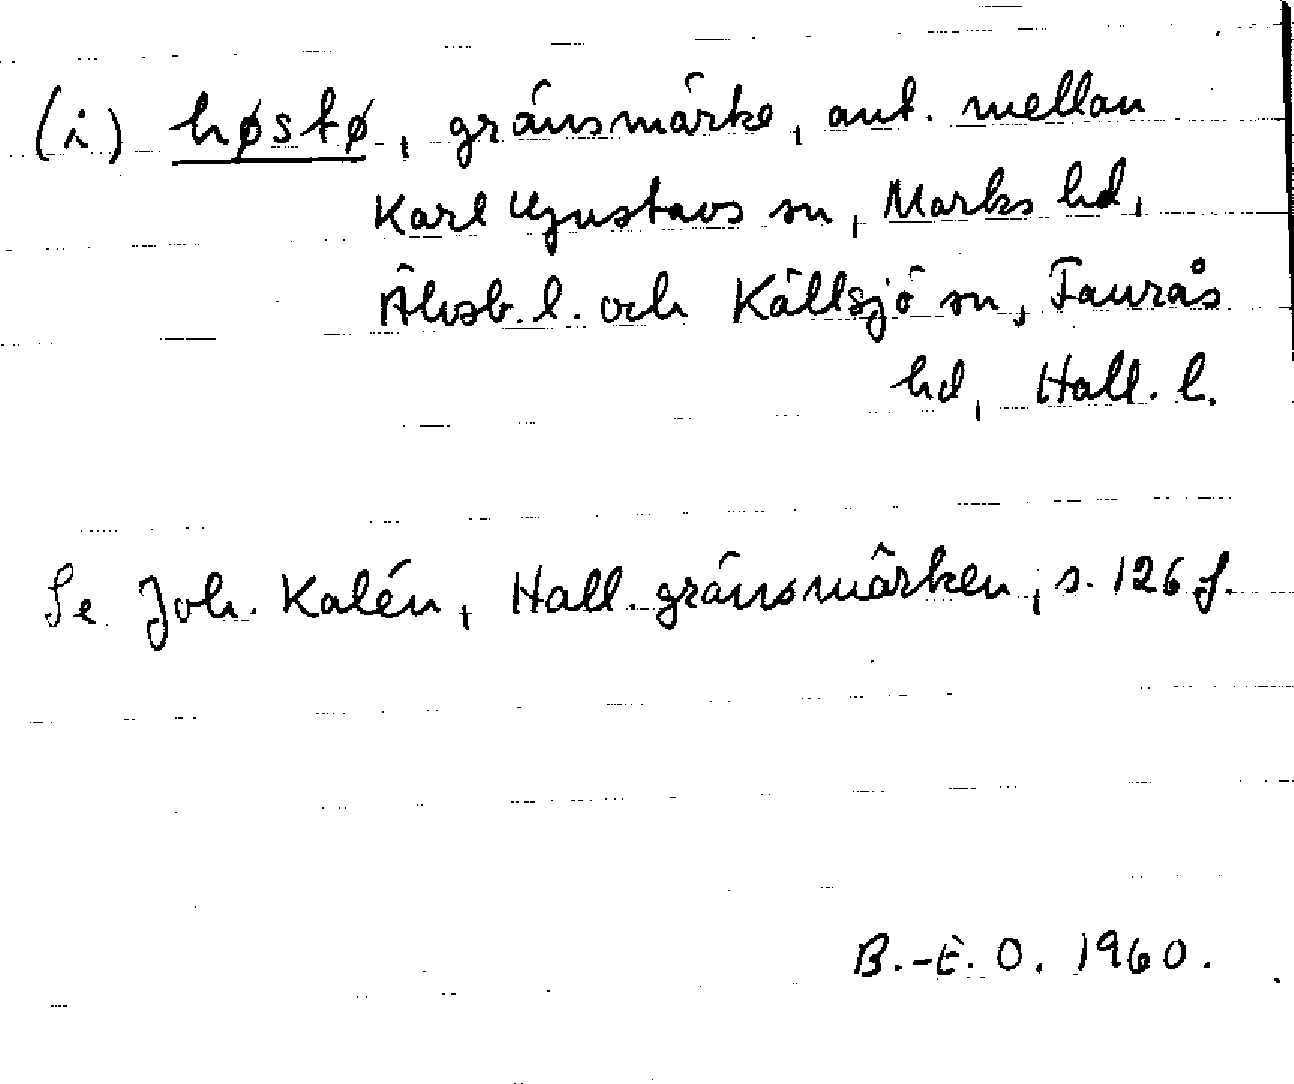 (i) høstø, gränsmärke, ant. mellan
Karl Gustavs sn, Marks hd,
Älvsb. l. och Källsjö sn, Faurås
hd, Hall. l.
Se Joh. Kalén, Hall. gränsmärken, s. 126 f.
B.-E. O. 1960.